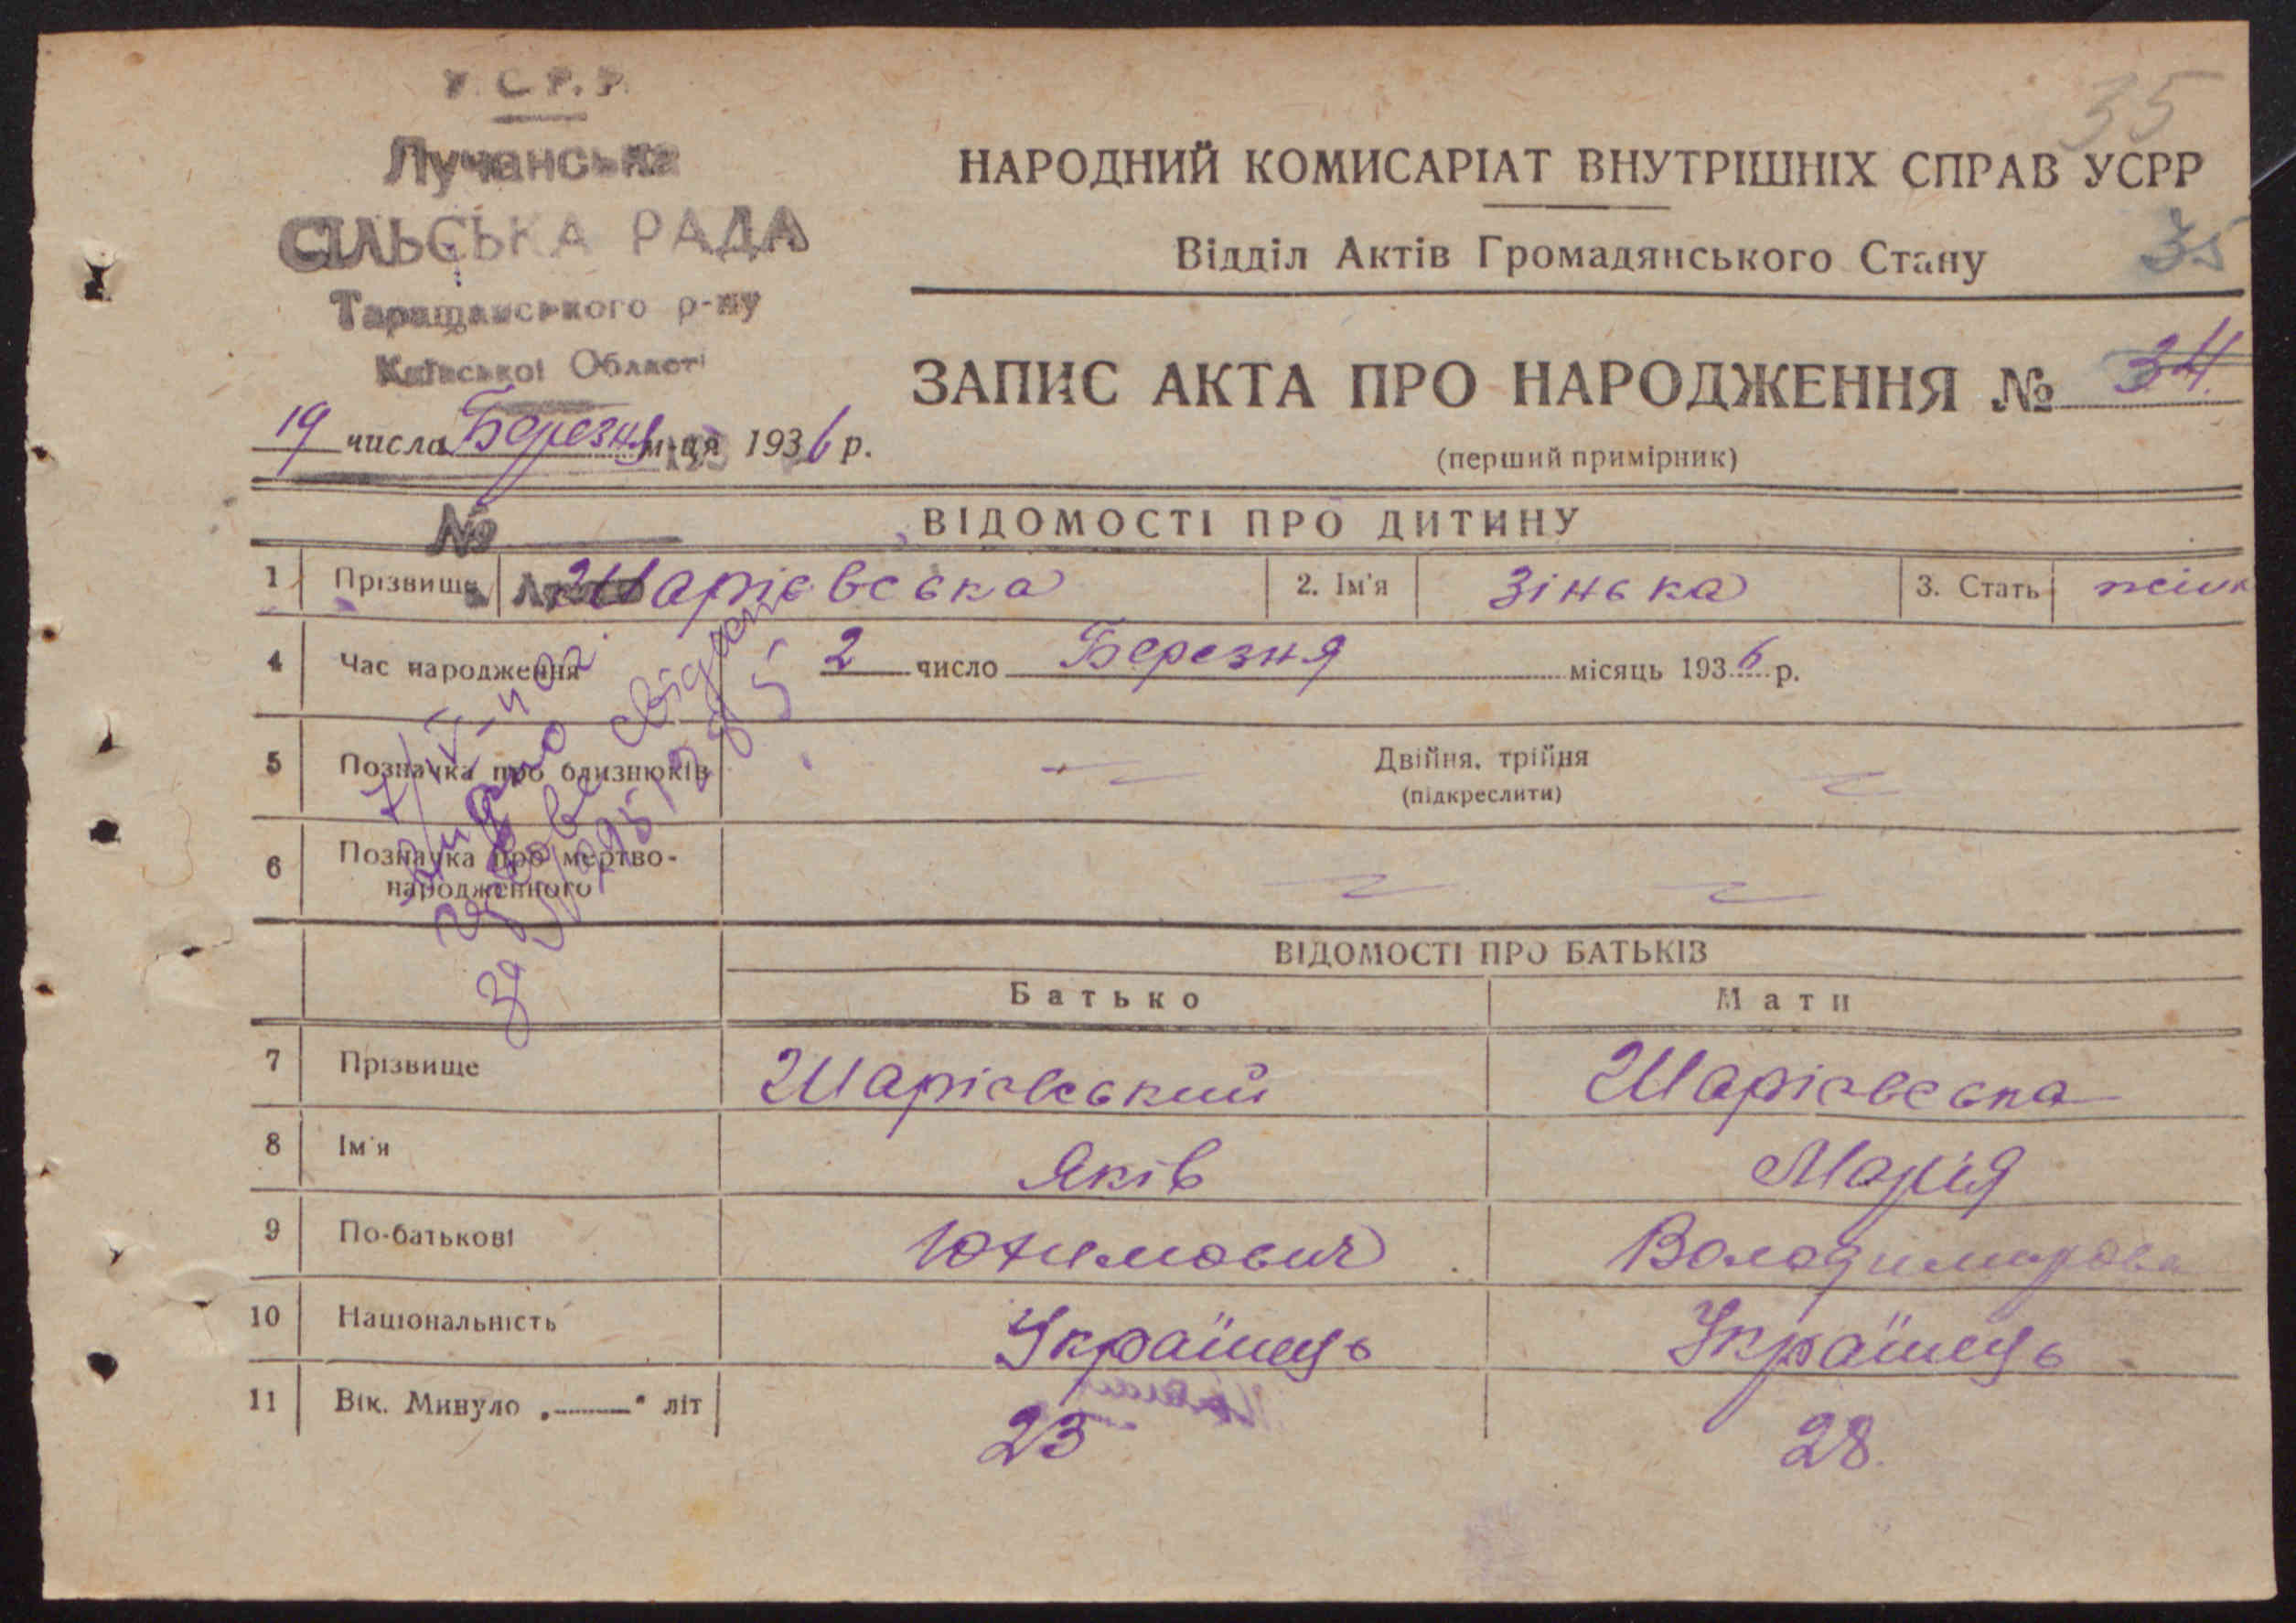 У.С.Р.Р.
35
Лучанська
СІЛЬСЬКА РАДА
Таращанського р-ну
Київської Області
НАРОДНИЙ КОМИСАРІАТ ВНУТРІШНІХ СПРАВ УСРР
Відділ Актів Громадянського Стану
35
ЗАПИС АКТА ПРО НАРОДЖЕННЯ № 34.
(перший примірник)
19 числа Березня м-ця 1936 р.
№
ВІДОМОСТІ ПРО ДИТИНУ
1 Прізвище Шарієвська 2. Ім'я Зінька 3. Стать жіик
4 Час народження 2 число Березня місяць 1936 р.
5 Позначка про близнюків Двійня, трійня
(підкреслити)
6 Позначка про мертво-
народженного
ВІДОМОСТІ ПРО БАТЬКІВ
Батько Мати
7 Прізвище Шарієвський Шарієвська
8 Ім'я Яків Марія
9 По-батькові Юхимович Володимирова
10 Національність Українець Українець
11 Вік. Минуло „———" літ 23 28.